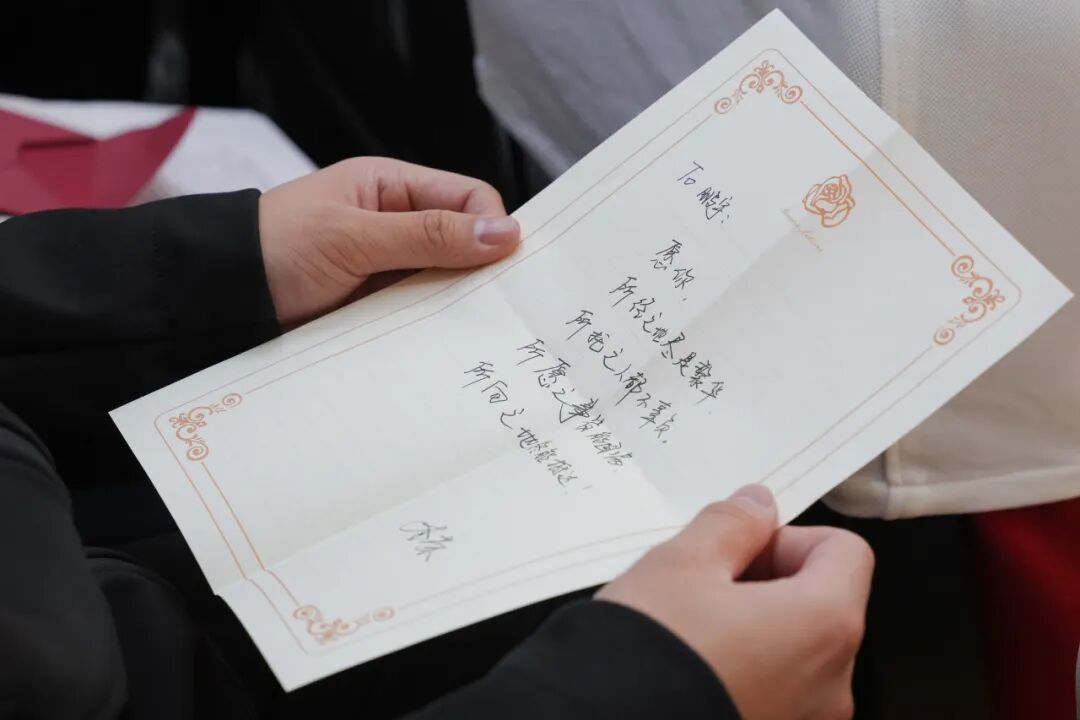 To 鹏宇:
愿你,
所经之地尽是繁华,
所托之人都不辜负。
所愿之事皆能圆满
所向之地都能抵达!